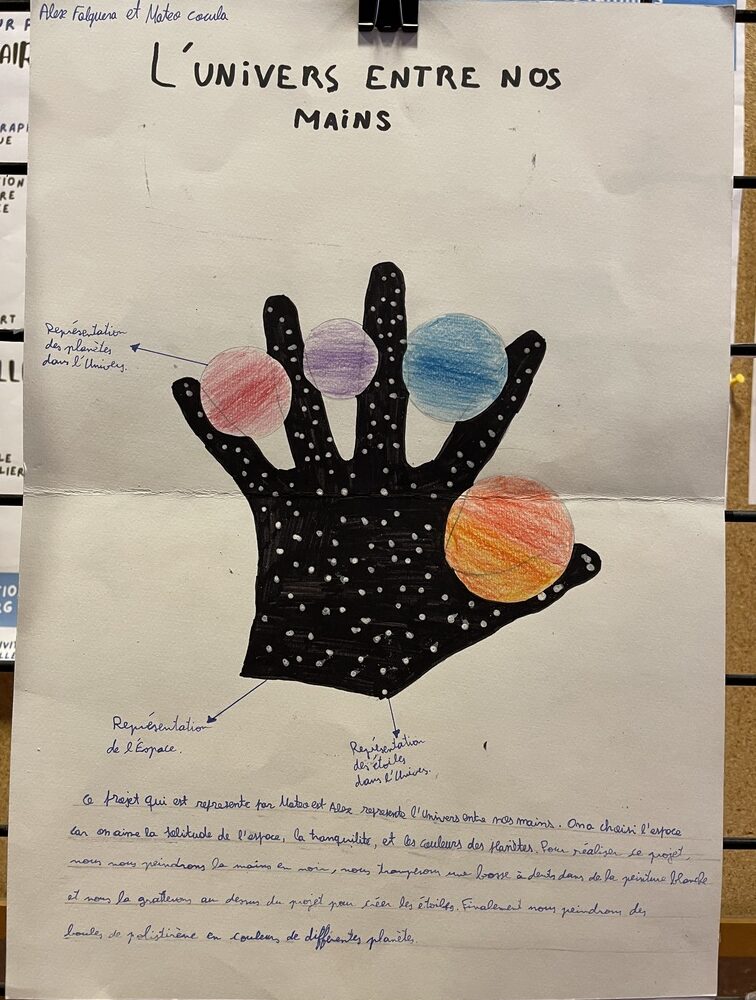 Alex Falguera et Mateo cocula
L'UNIVERS ENTRE NOS
MAINS
Représentation
des planètes
dans l'Univers.
Représentation
de l'Espace.
Représentation
des étoiles
dans l'Univers.
Ce projet qui est represente par Mateo est Alex represente l'Univers entre nos mains. On a choisi l'espace
car on aime la solitude de l'espace, la tranquilite, et les couleurs des planètes. Pour réaliser ce projet,
nous nous peindrons la mains en noir, nous tramperons une bosse à dents dans de la peinture blanche
et nous la gratterons au dessus du projet pour créer les étoiles. Finalement nous peindrons des
boules de polistirène en couleurs de différentes planètes.